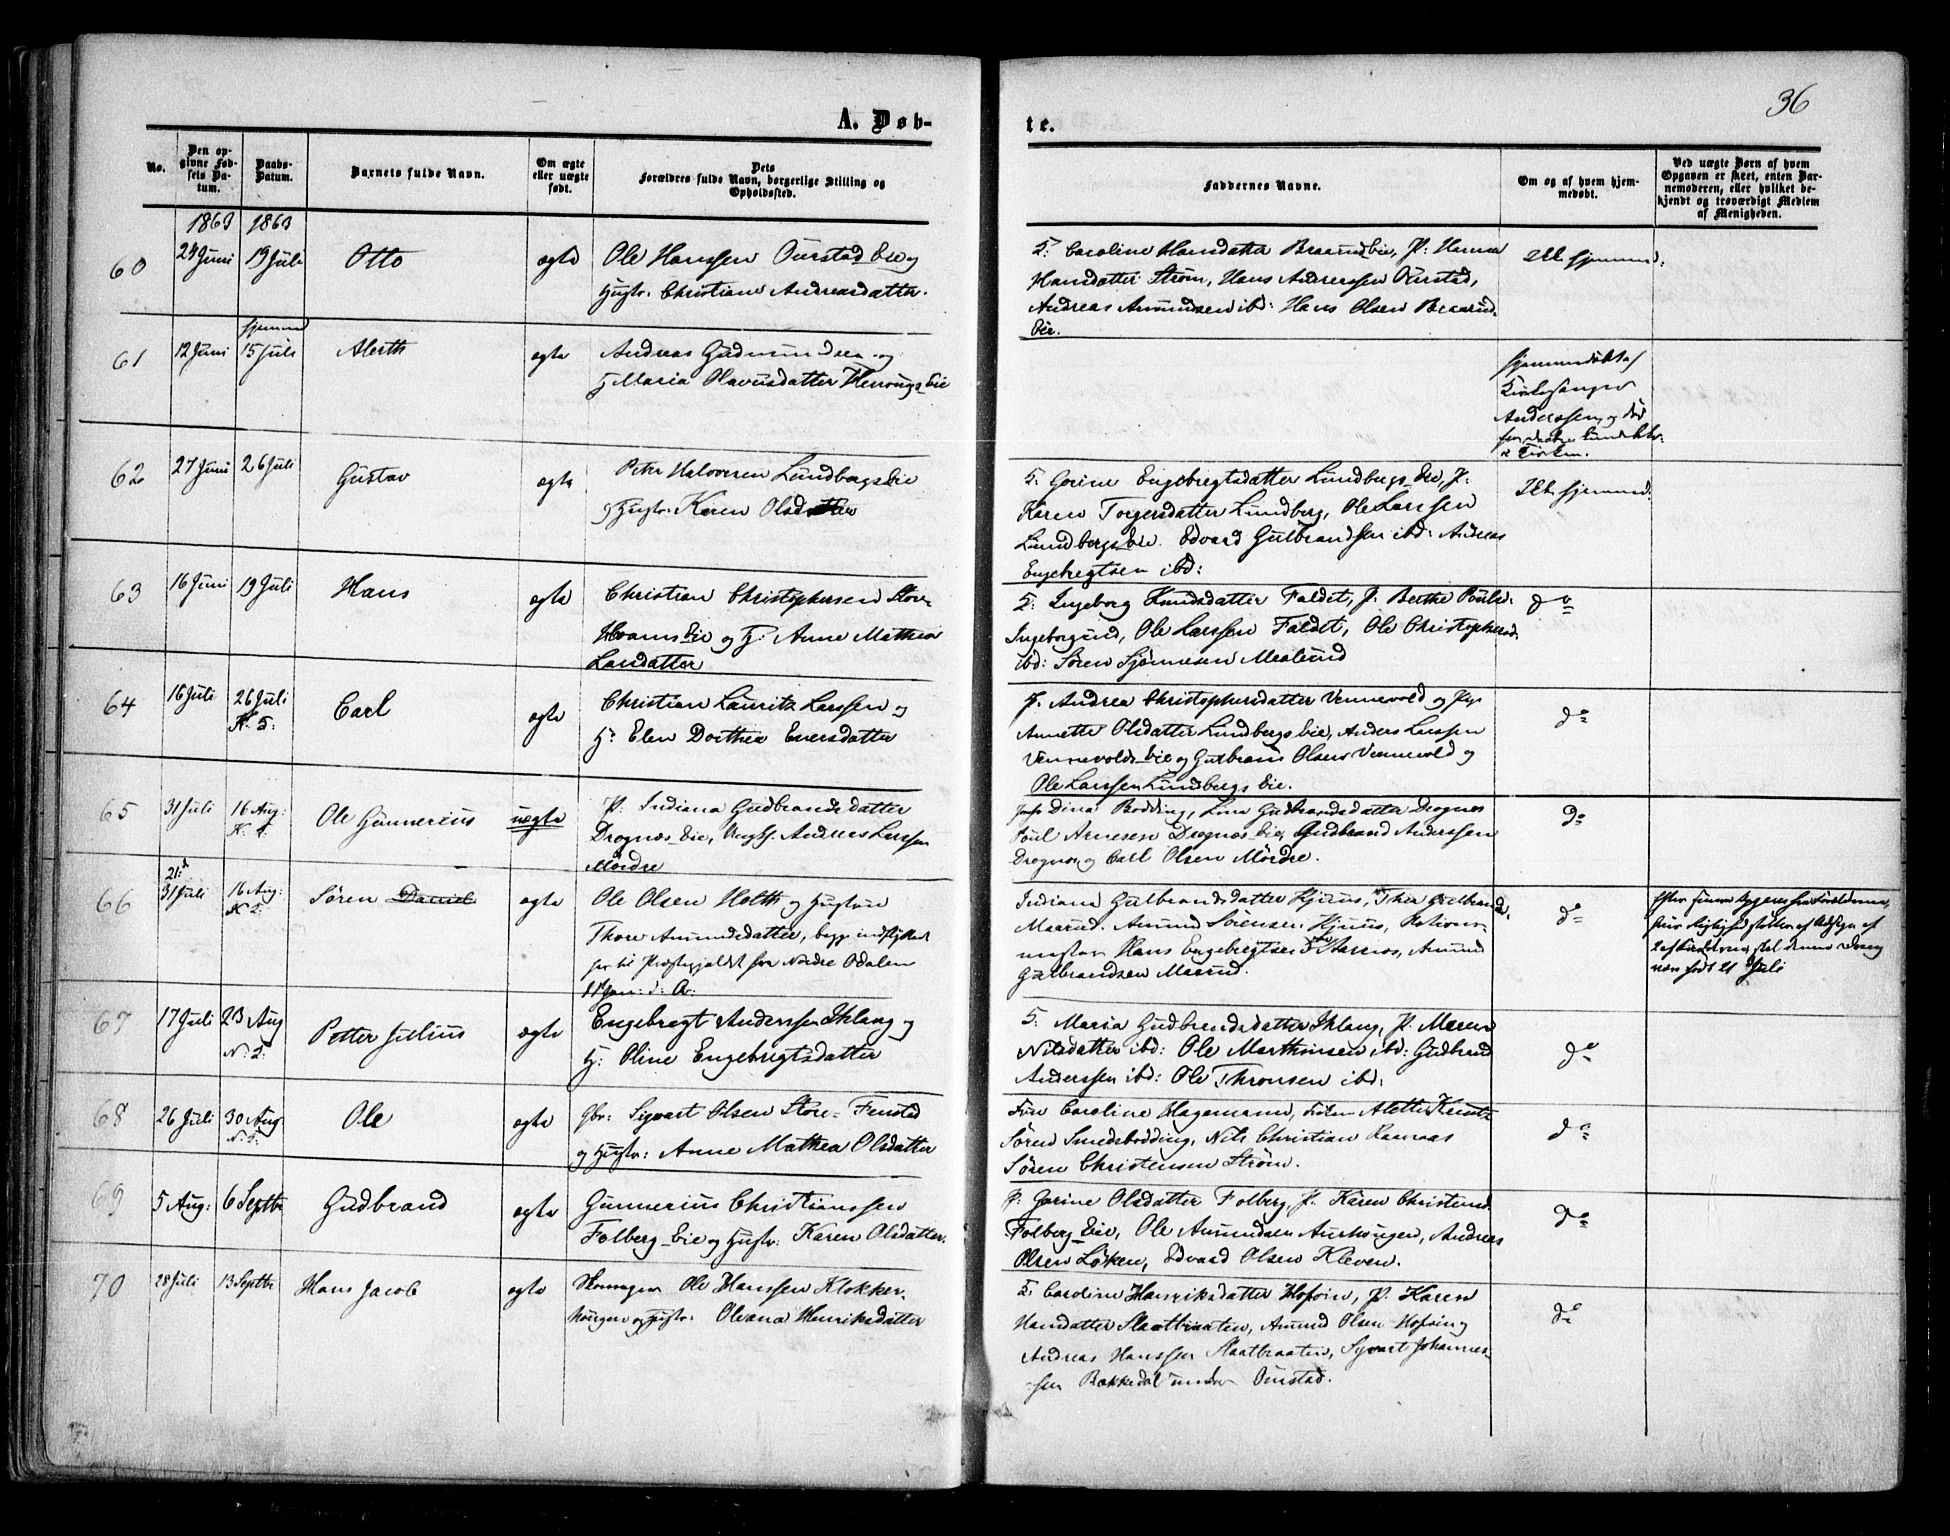 36
A. Døb-
te.
No.
Den op-
givne Fød-
sels Da-
tum.
Daabs-
Datum.
Barnets fulde Navn.
Om ægte
eller uægte
født.
Dets
Forældres fulde Navn, borgerlige Stilling og
Opholdssted.
Faddernes Navne.
Om og af hvem hjem-
medøbt.
Ved uægte Børn af hvem
Opgaven er skeet, enten Bar-
nemoderen, eller hvilket be-
kjendt og troværdigt Medlem
af Menigheden.
1863 1863
60 24 Juni 19 Juli Otto ægte
Ole Hanssen Ourstad Eie og
Hustr: Christiane Andreasdatter.
Caroline Hansdatter Braarud Eie, P: Hanna
Hansdatter Strøm, Hans Anderssen Ourstad,
Andreas Amundsen ibd: Hans Olsen Braarud
Eie.
Ikke hjemmed:
61 12 Juni hjemmed 15 Juli ægte
Andreas Gudmundsen og
H Maria Olavusdatter Eie
hjemmedøbt af
Kirkesanger
Anderssen, og død
62 27 Juni 26 Juli Gustav ægte
Peter Halvorsen Lundbergs Eie
og Hustr: Karen Olsdatter
Gorine Engebregtsdatter Lundbergs Eie, P:
Karen Torgersdatter Lundberg, Ole Larssen
Lundbergs Eie. Edvard Gulbrandsen ibd: Andreas
Engebregtsen ibd:
Ikke hjemmed:
63 16 Juni 19 Juli Hans ægte
Christian Christophersen Store-
Hvams Eie og H: Anne Mathea
Larsdatter
Ingeborg Knudsdatter Faldet, P: Berthe Pouls:
Ingeborgrud, Ole Larssen Faldet, Ole Christophersen
ibd: Søren
do
64 16 Juli 26 Juli Carl ægte
Christian Lauritz Larssen og
H: Elen Dorthea Eversdatter
P. Andrea Christophersdatter Vennevold og Pige
Annette Olsdatter Lundbergs Eie, Anders Larssen
Vennevolds Eie og Gulbrand Olsen Vennevold og
Ole Larssen Lundbergs Eie.
do
65 31 Juli 16 Aug: Ole Gunnerius uægte
P. Indiana Gudbrandsdatter
Drognæs Eie, Ungk. Andreas Larssen
Mördre
Dina Bodding, Lina Gudbrandsdatter Drognæs
Poul Arnesen Drognæs Eie, Gudbrand Anderssen
Drognæs, og Carl Olsen Mördre.
do
66 21. 31 Juli 16 Aug: Søren Daniel ægte
Ole Olsen Holth og Hustrue
Thore Amundsdatter, begge indflyttede
her til Præstegjeldet fra Nordre Odalen
11 Jan: d: A:
Indiana Gulbrandsdatter Hjuus, Thea Gulbrandsd.
Maarud. Amund Sörensen Hjuus, Rotions-
mester Hans Engebregtsen Aarnos, Amund
Gulbrandsen Maarud.
do
født 21 Juli
67 17 Juli 23 Aug Petter Julius ægte
Engebregt Anderssen Ihlang og
H: Oline Engebregtsdatter
Maria Gudbrandsdatter Ihlang, P. Maren
Nilsdatter ibd: Ole Marthinsen ibd: Gudbrand
Anderssen ibd: Ole Thronsen ibd:
do
68 26 Juli 30 Aug Ole ægte
Gbr: Sigvart Olsen Store-Fenstad
og Hustr: Anne Mathea Olsdatter
Caroline Hagemann, Frøken Alette
Søren Smedsbodding, Nils Christian
Søren Christensen Strøm.
do
69 5 Aug: 6 Septbr Gudbrand ægte
Gunnerius Christianssen
Folberg Eie og Hustr: Karen Olsdatter.
P: Gorine Olsdatter Folberg, P. Karen Christensd.
Folberg Eie, Ole Amundsen Aurhougen, Andreas
Olsen Løken, Edvard Olsen Kleven.
do
70 28 Juli 13 Septbr Hans Jacob ægte
Ole Hanssen Klokker-
hougen og Hustr: Oleana Henriksdatter
Caroline Henriksdatter Hofoin, P. Karen
Hansdatter Slaatbraaten, Amund Olsen Hofoin
Andreas Hanssen Slaatbraaten, Sigvart Johannes-
sen Bækkedal under Ourstad.
do